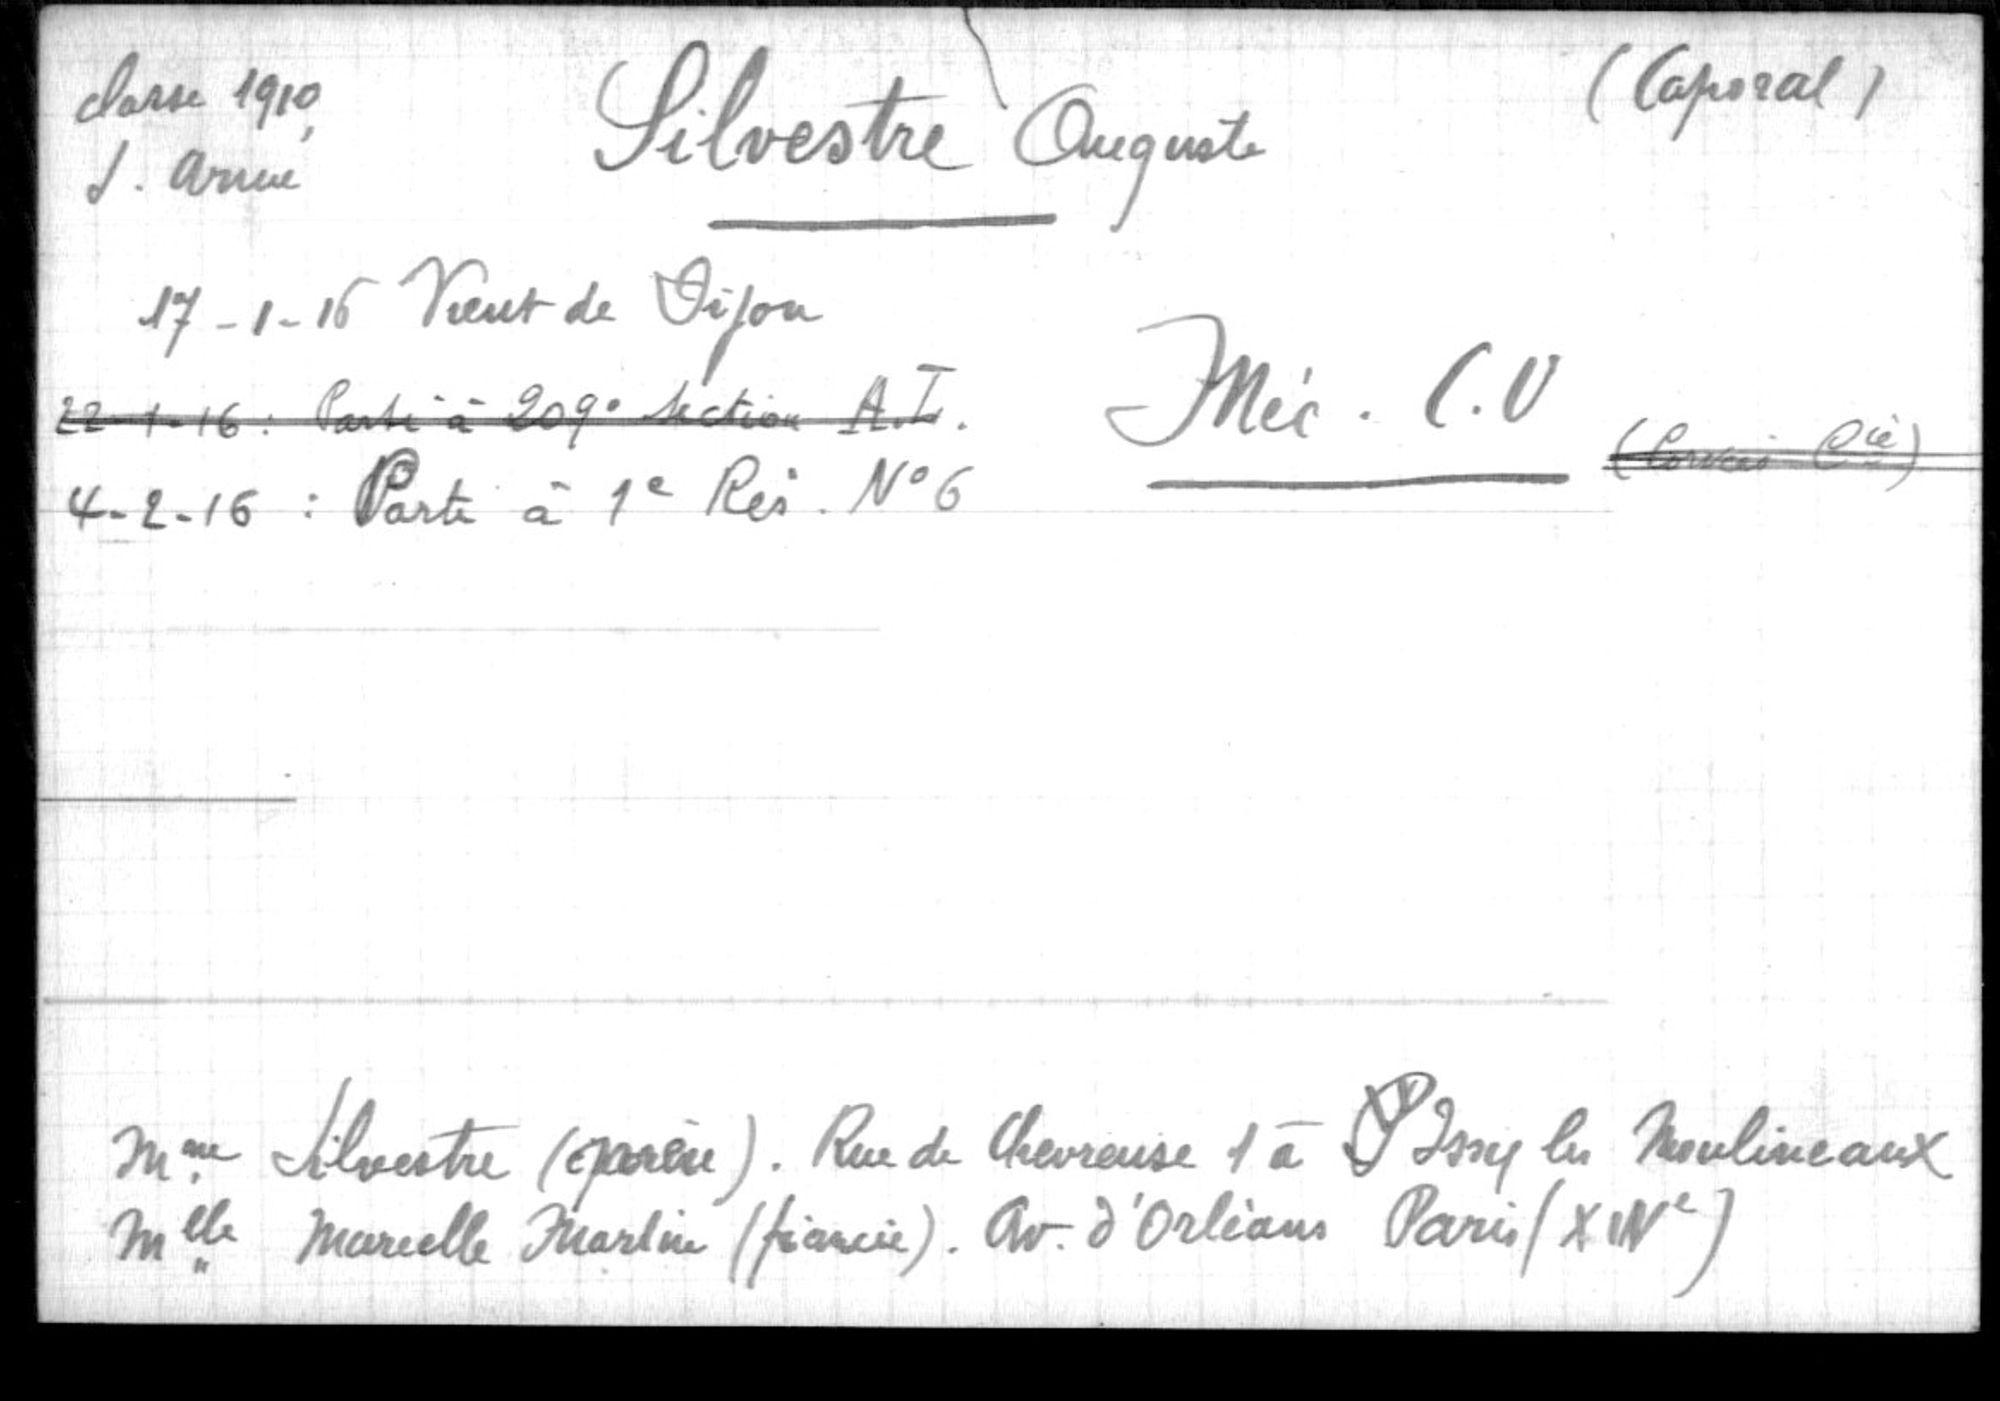 classe 1910
S. Armé
Silvestre Auguste
(Caporal)
17-1-16 Vient de Dijon
22-1-16: Parti à 209e Section A.T.
Méc. C.V
4-2-16: Parti à 1e Rés. N°6
Mme Silvestre (mère). Rue de Chevreuse 1 à Issy les Moulineaux
Melle Marcelle Martin (fiancée). Av. d'Orléans Paris (XIVe)